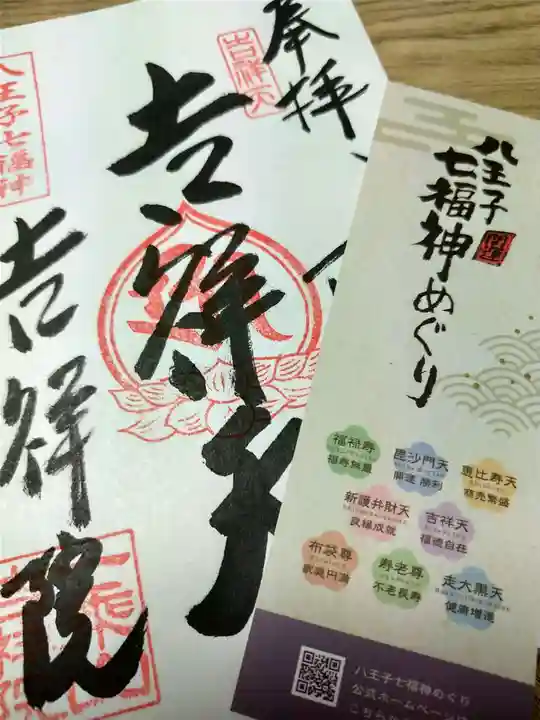 奉拝
吉祥天
吉祥天
八王子七福神
吉祥院
八王子
七福神めぐり
福禄寿
福寿無量
毘沙門天
開運 勝利
恵比寿天
商売繁盛
新護弁財天
良縁成就
吉祥天
福徳自在
布袋尊
家庭円満
寿老尊
不老長寿
走大黒天
健康増進
八王子七福神めぐり
公式ホームページ
こちら